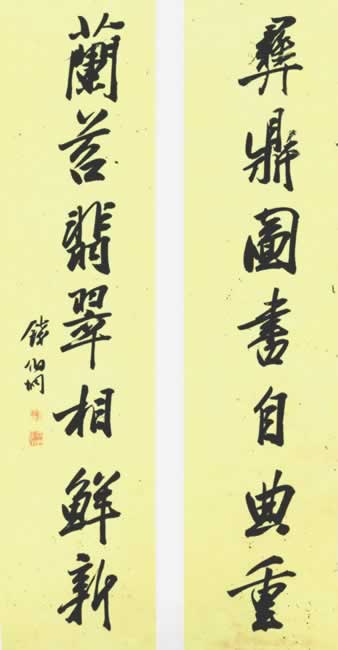 彝鼎圖書自典重
蘭苕翡翠相鮮新
錢伯坰